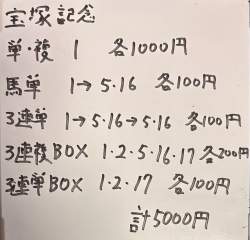 宝塚記念
単・複 1 各1000円
馬単 1→5・16 各100円
3連単 1→5・16→5・16 各100円
3連複BOX 1・2・5・16・17 各200円
3連単BOX 1・2・17 各100円
計5000円